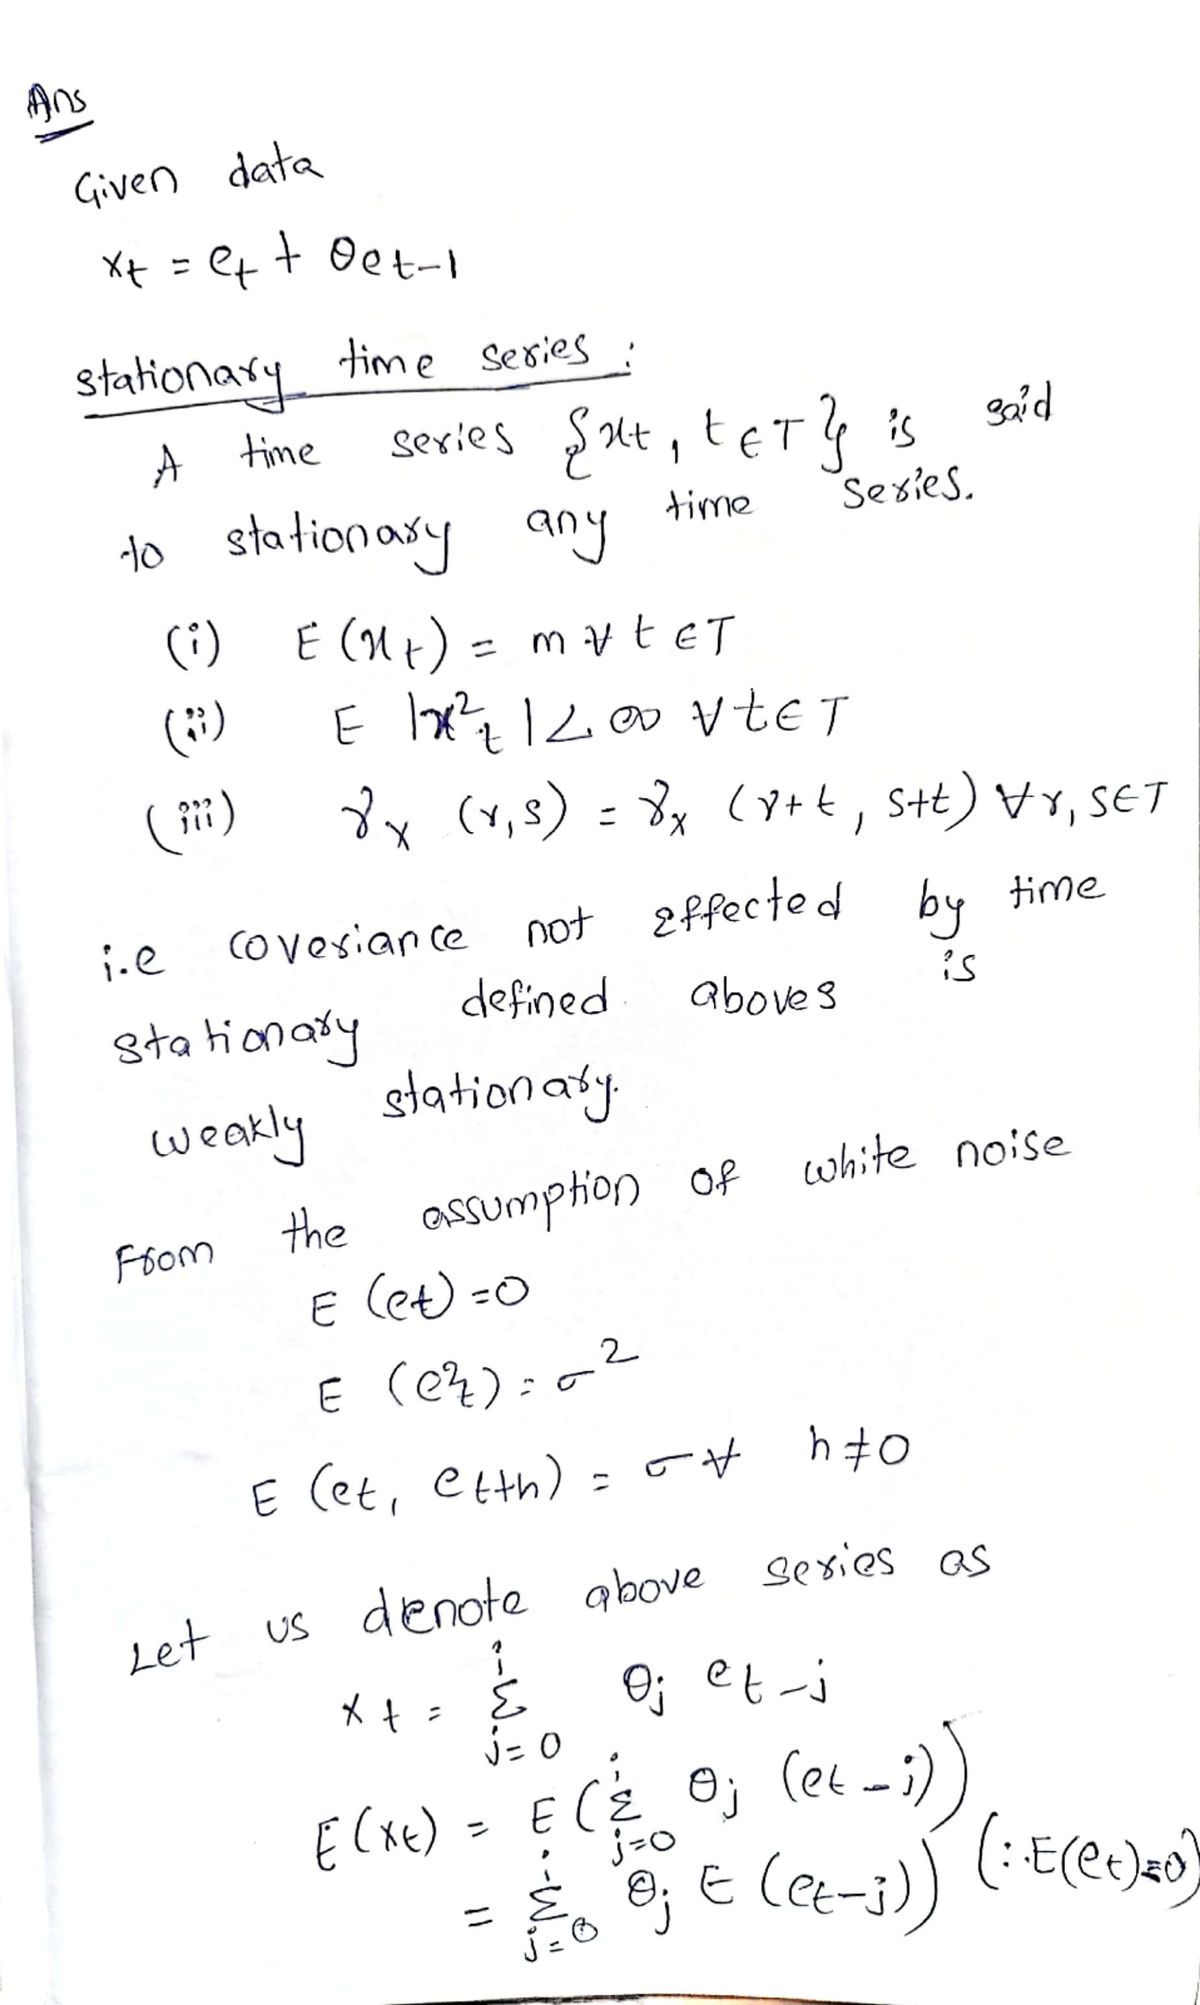 Ans
Given data
xt = et + θet-1
stationary time series :
A time series {xt, t ∈ T} is said
to stationary any time series.
(i) E (xt) = m ∀ t ∈ T
(ii) E |x²t| < ∞ ∀ t ∈ T
(iii) γx (r, s) = γx (r+t, s+t) ∀ r, s ∈ T
i.e coveriance not effected by time
stationary defined aboves is
weakly stationary.
From the assumption of white noise
E (et) = 0
E (e²t) = σ²
E (et, et+h) = σ ∀ h ≠ 0
Let us denote above series as
xt = Σ^i_{j=0} θj et-j
E(xt) = E(Σ^i_{j=0} θj (et-j))
= Σ^i_{j=0} θj E (et-j)) (∵ E(et)=0)